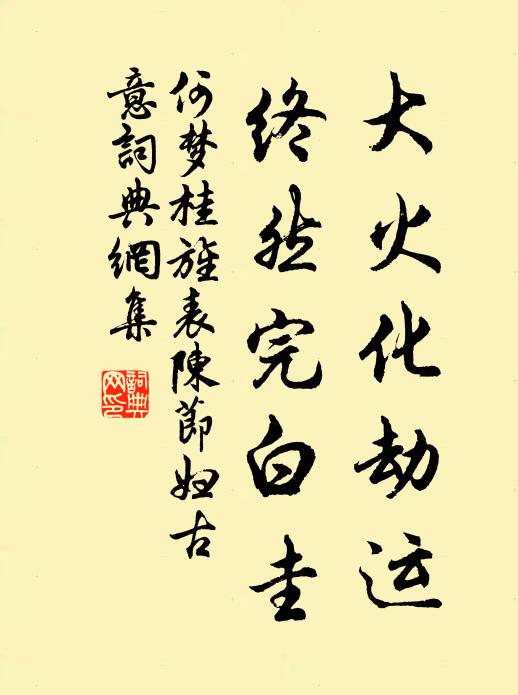 大火化劫运
终然完白圭
何梦桂旌表陳節婦古
意詞典網集
詞典
网印